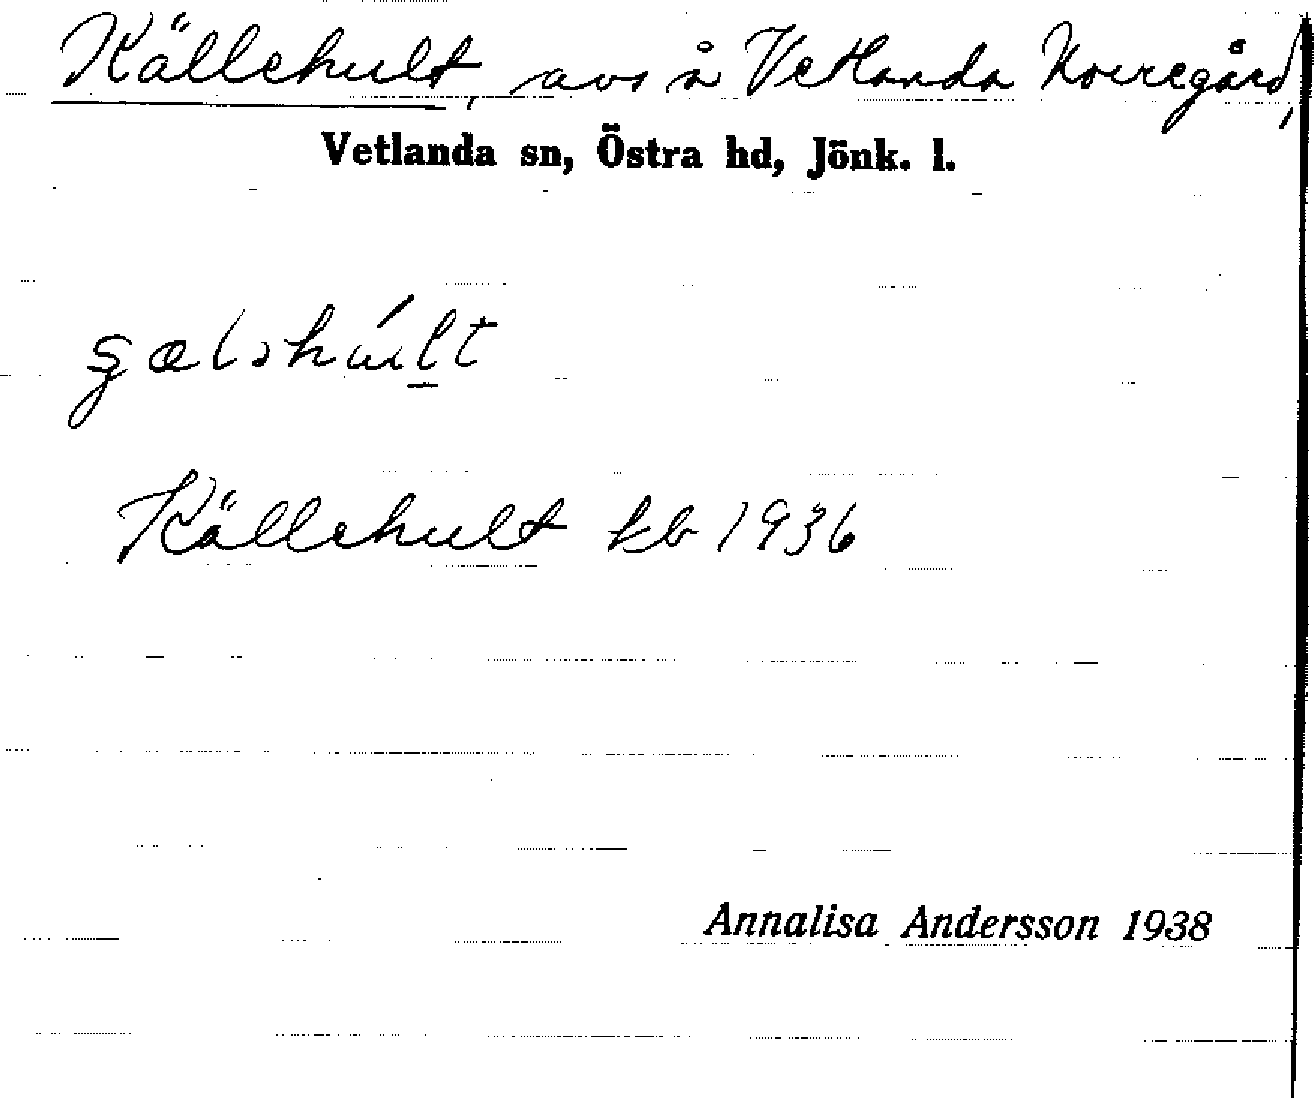 Källehult, avs å Vetlanda Norregård,
Vetlanda sn, Östra hd, Jönk. l.
Källehult kb 1936
Annalisa Andersson 1938